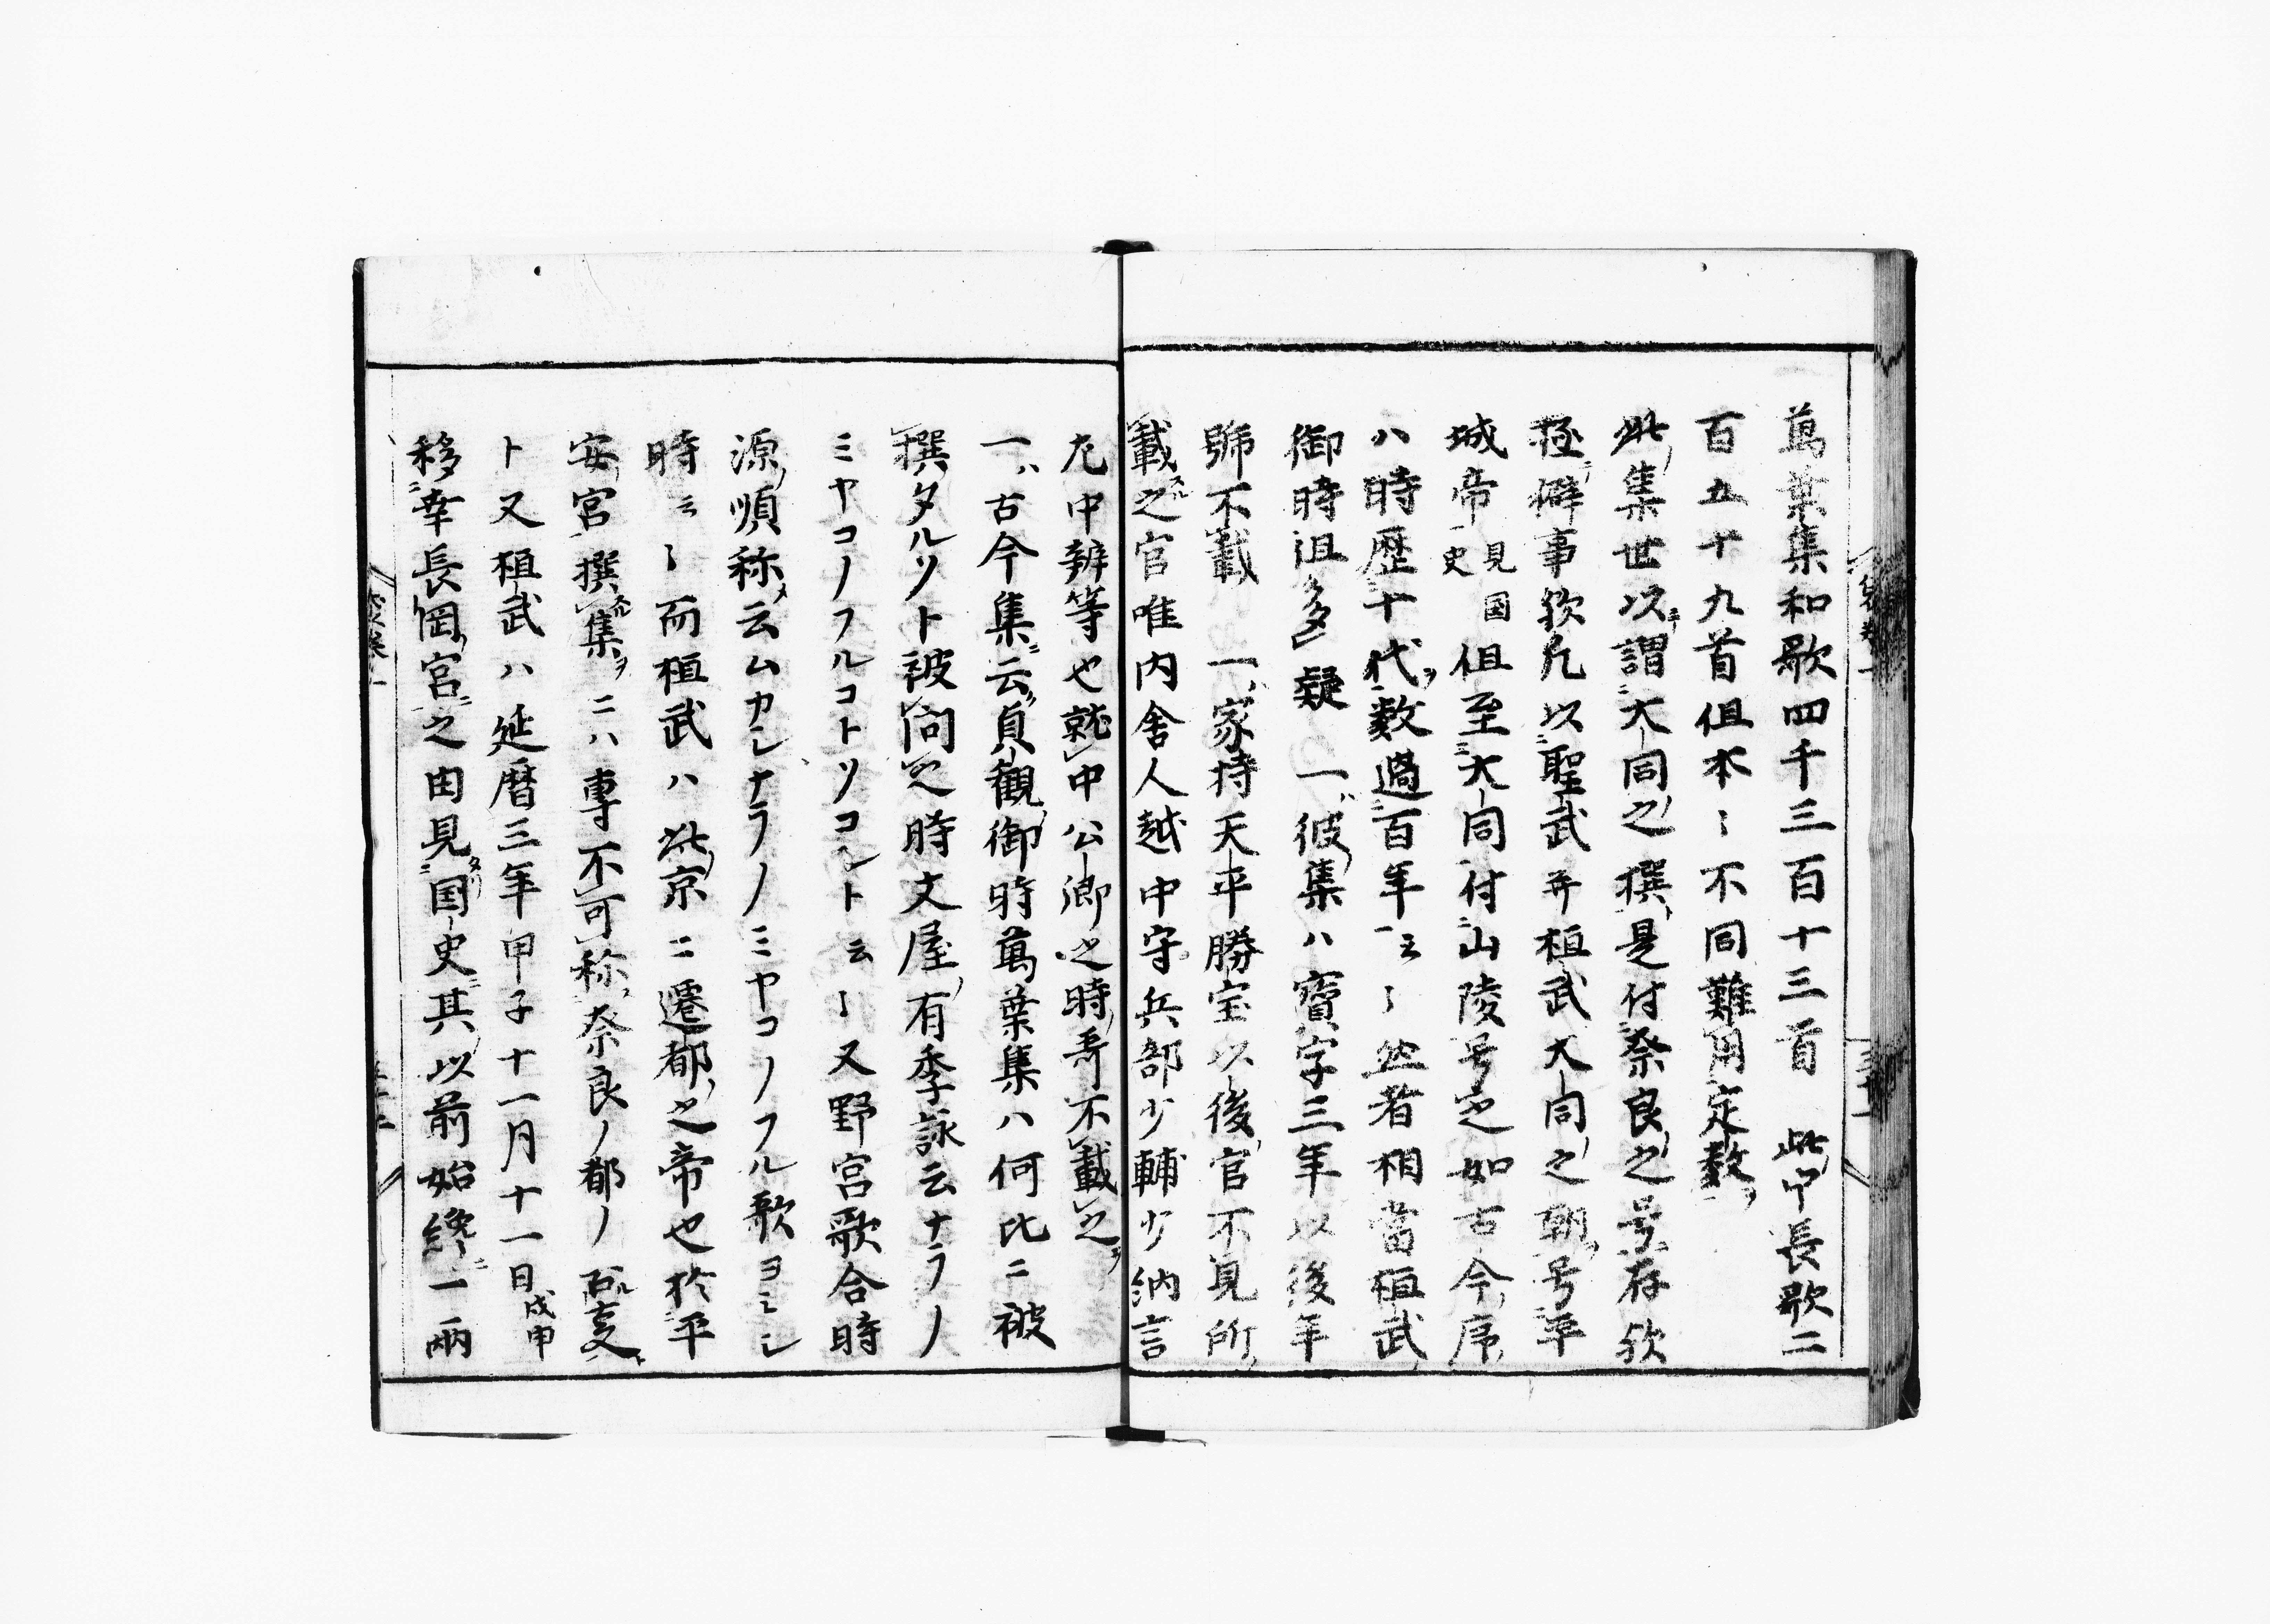 萬葉集和歌四千三百十三首　此中長歌二
百五十九首但本〻不同難用定数
此集世以謂大同之撰是付奈良之号存欤
極僻事欤凡以聖武并桓武大同之朝号平
城帝見国史但至大同付山陵号之如古今序
ハ時歴十代数過百年云〻然者相當桓武
御時沮多疑　一彼集ハ寶字三年以後年
號不載　一家持天平勝宝以後官不見所
載之官唯内舎人越中守兵部少輔少納言
左中辨等也就中公卿之時哥不載之
一古今集云貞観御時萬葉集ハ何比ニ被
撰タルソト被問之時文屋有季詠云ナラノ
ミヤコノフルコトソコレト云〻又野宮歌合時
源順称云ムカシナラノミヤコノフル歌ヨミシ
時云〻而桓武ハ此京ニ遷都之帝也於平
安宮撰集ニハ専不可称奈良ノ都ノ
ト又桓武ハ延暦三年甲子十一月十一日戊申
移幸長岡宮之由見国史其以前始終一両